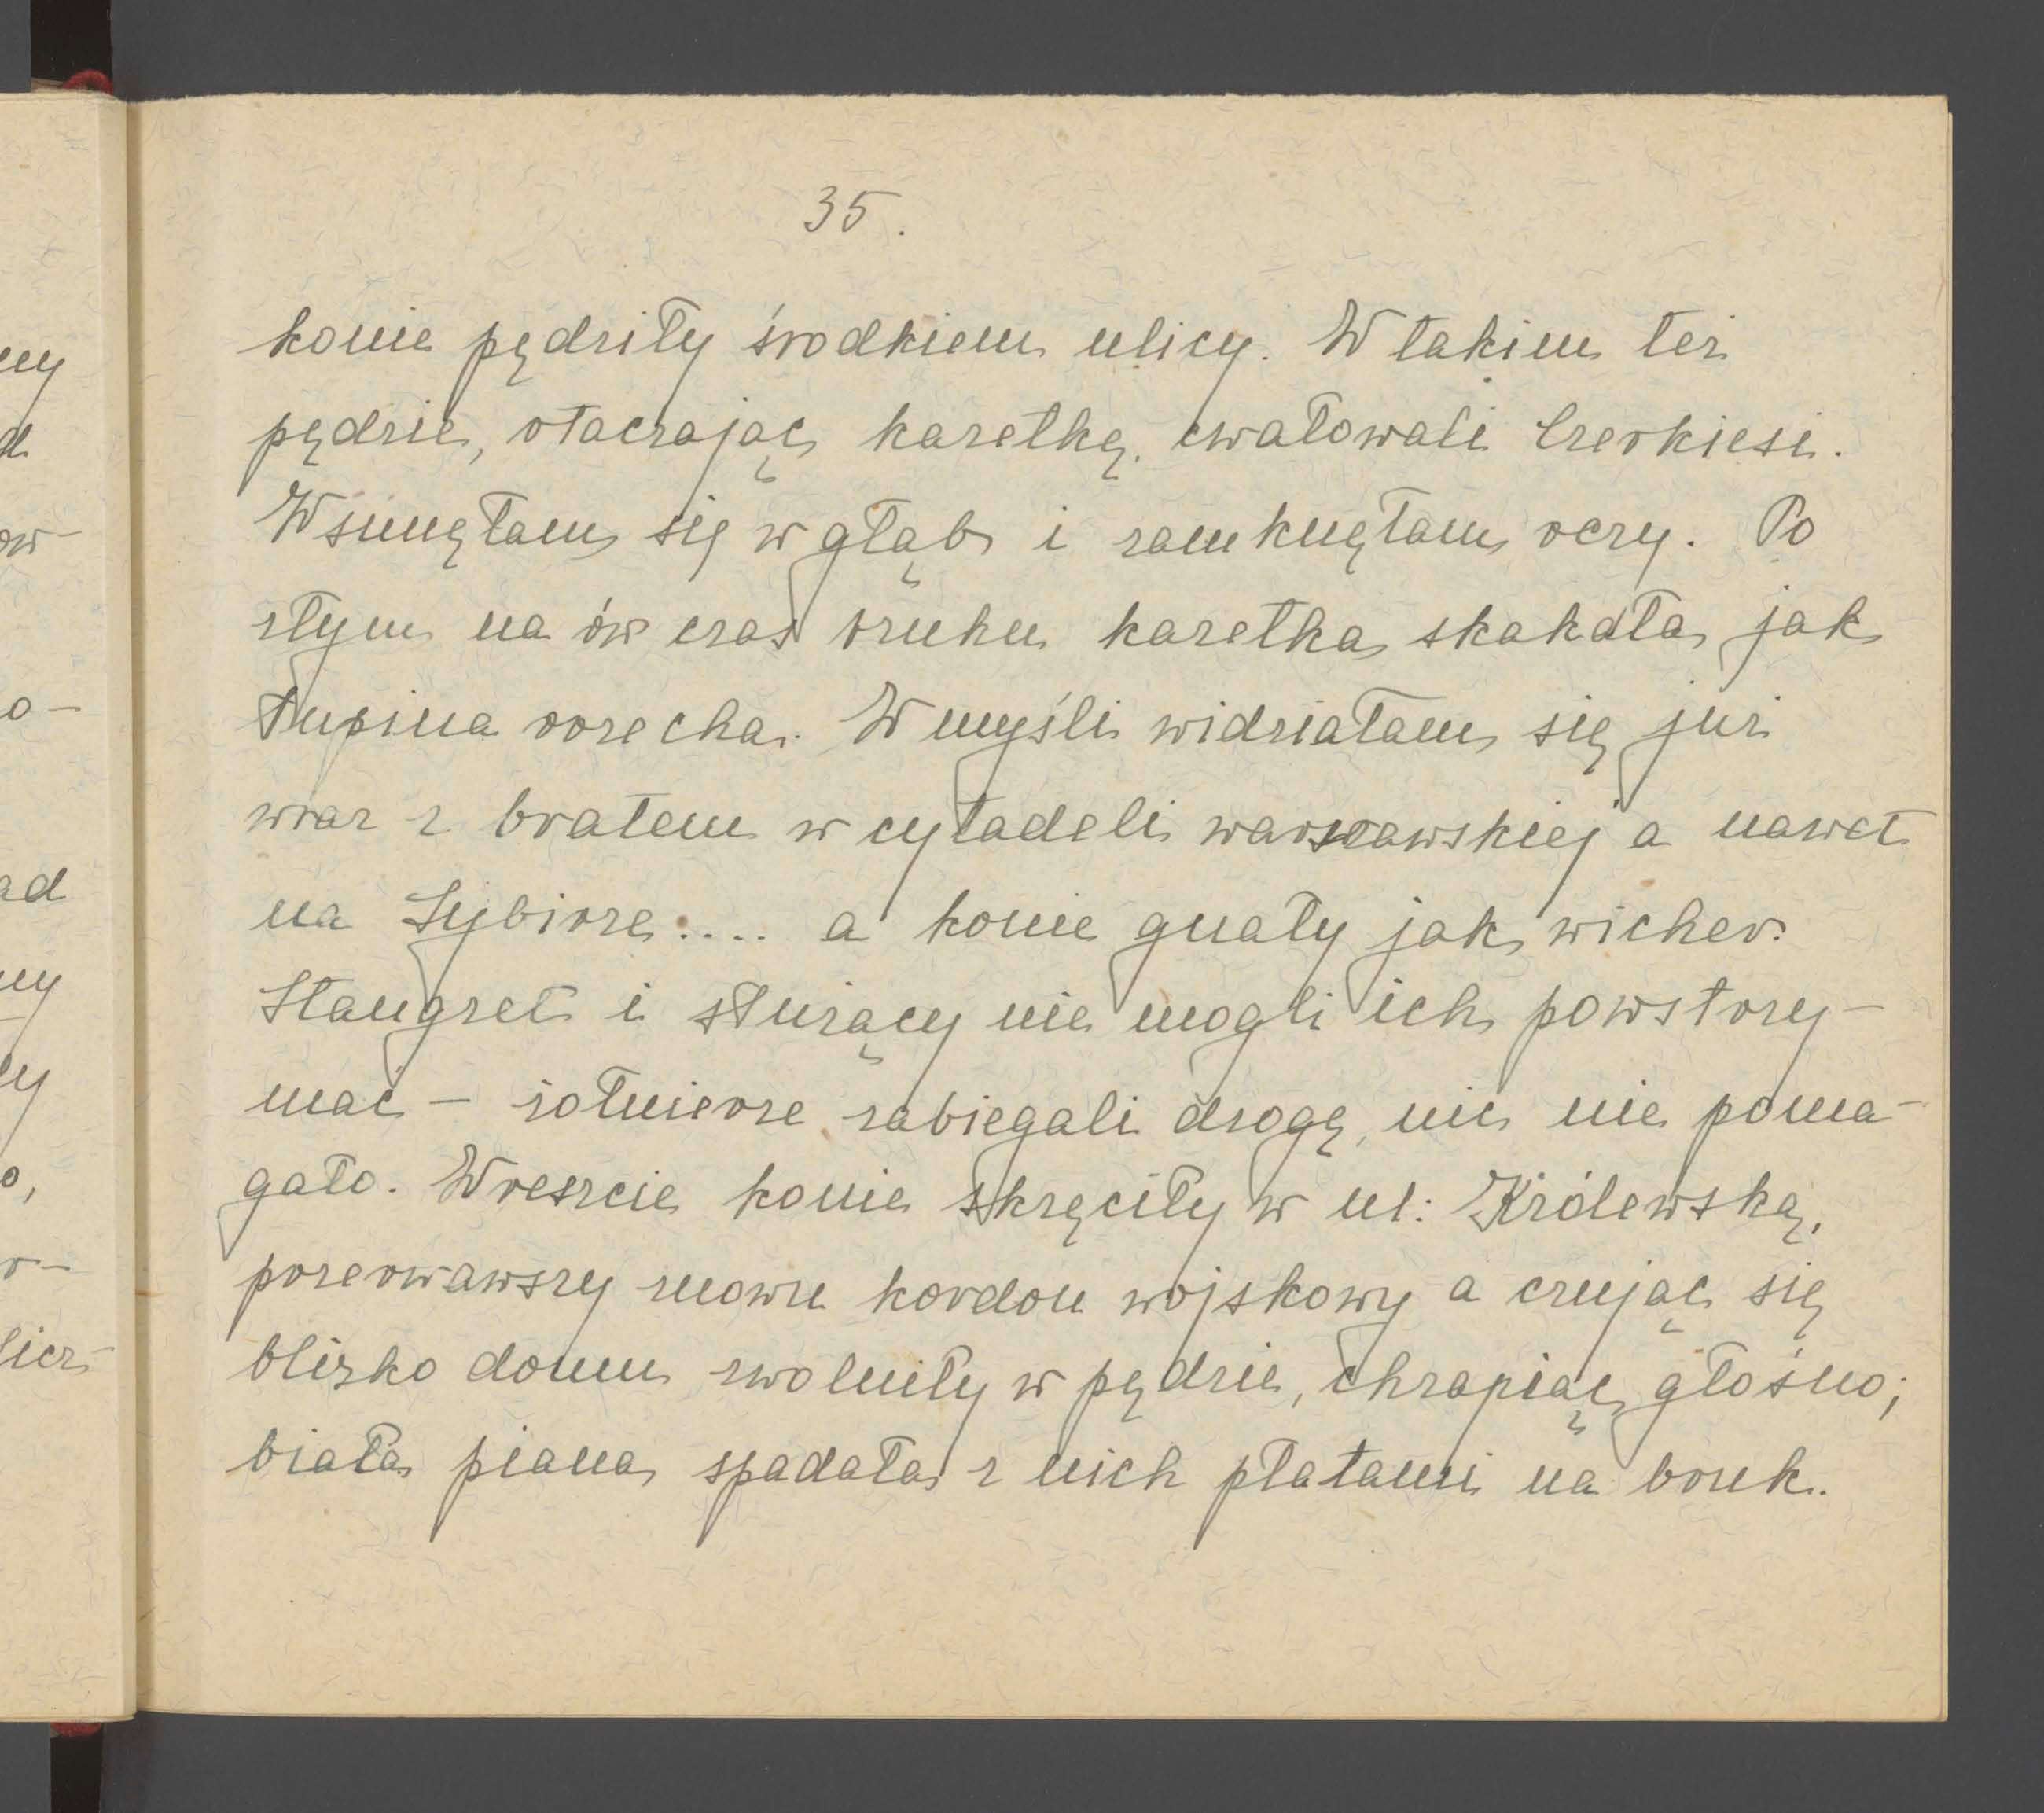 35.
konie pędziły środkiem ulicy. W takim też
pędzie, otaczając karetkę, cwałowali Czerkiesi.
Wsunęłam się w głąb i zamknęłam oczy. Po
złym na ów czas bruku karetka skakała jak
łupina orzecha. W myśli widziałam się już
wraz z bratem w cytadeli warszawskiej a nawet
na Sybirze.... a konie gnały jak wicher.
Stangret i służący nie mogli ich powstrzy-
mać - żołnierze zabiegali drogę, nic nie poma-
gało. Wreszcie konie skręciły w ul: Królewską,
przerwawszy znowu kordon wojskowy a czując się
blizko domu zwolniły w pędzie, chrapiąc głośno;
biała piana spadała z nich płatami na bruk.
ny
d
ow-
o-
ad
ny
ły
o,
r-
licz-